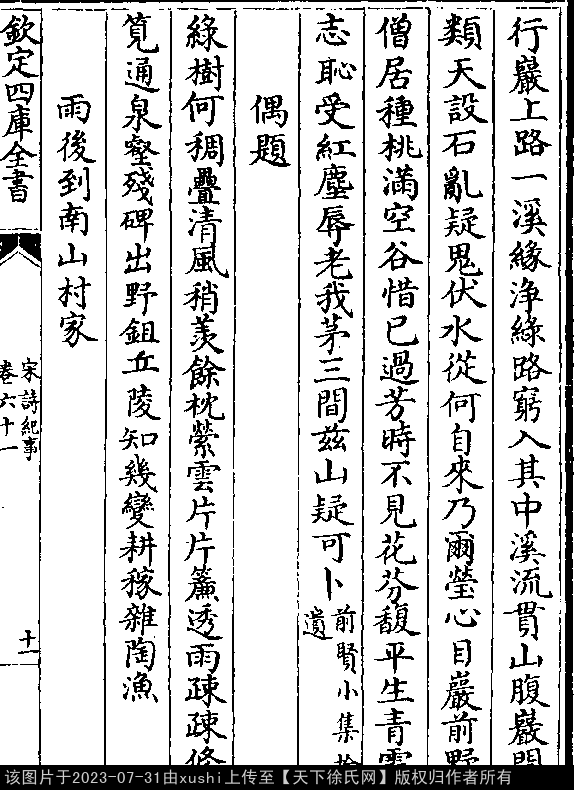 行巖上路一溪緣淨綠路窮入其中溪流貫山腹巖
類天設石亂疑鬼伏水從何自來乃爾瑩心目巖前野
僧居種桃滿空谷惜已過芳時不見花芬馥平生青雲
志恥受紅塵辱老我茅三間茲山疑可卜前賢小集拾
遺
偶題
綠樹何稠疊清風稍羨餘枕縈雲片片簾透雨疎疎
筧通泉壑殘碑出野鉏丘陵知幾變耕稼雜陶漁
雨後到南山村家
欽定四庫全書
宋詩紀事
卷六十一
十一
该图片于2023-07-31由xushi上传至【天下徐氏网】版权归作者所有